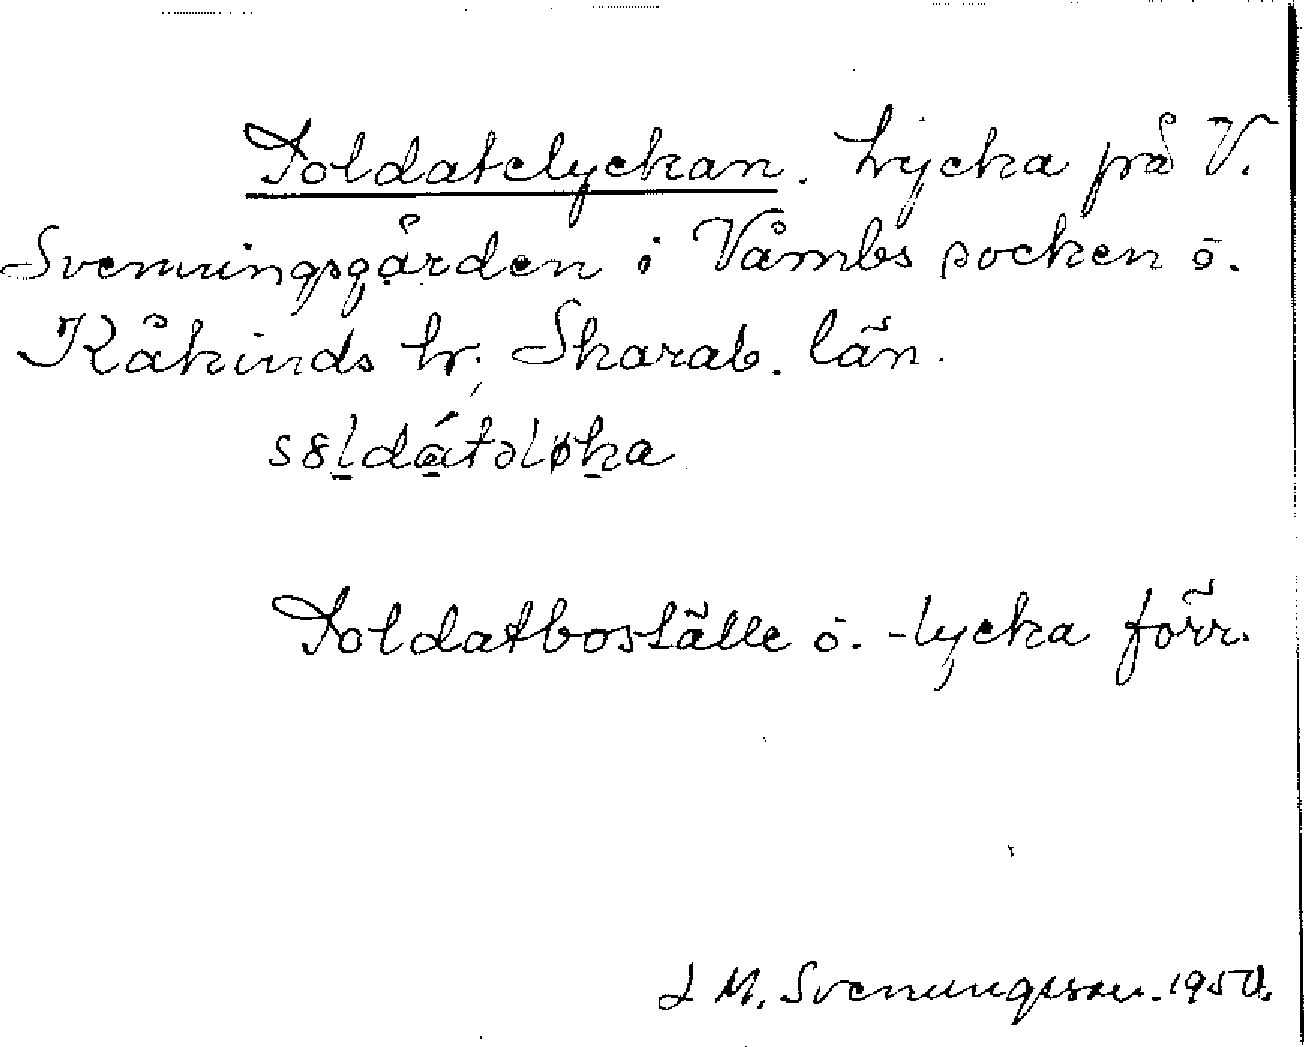 Soldatelyckan. Lycka på V.
Svenningsgården i Våmbs socken o.
Kåkinds hr, Skarab. län.
Soldatboställe o. -lycka förr.
J M. Svenungsson. 1950.